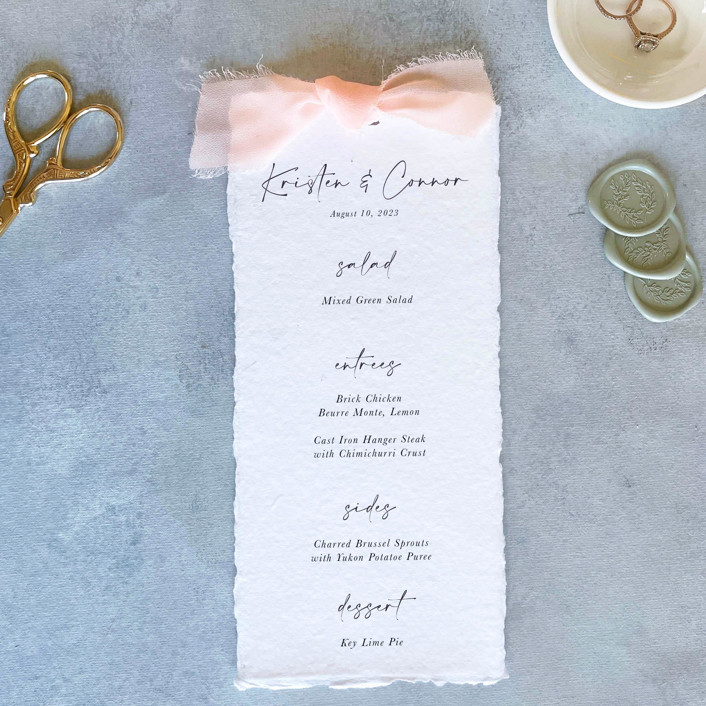 Kristen & Connor
August 10, 2023
salad
Mixed Green Salad
entrees
Brick Chicken
Beurre Monte, Lemon
Cast Iron Hanger Steak
with Chimichurri Crust
sides
Charred Brussel Sprouts
with Yukon Potatoe Puree
dessert
Key Lime Pie